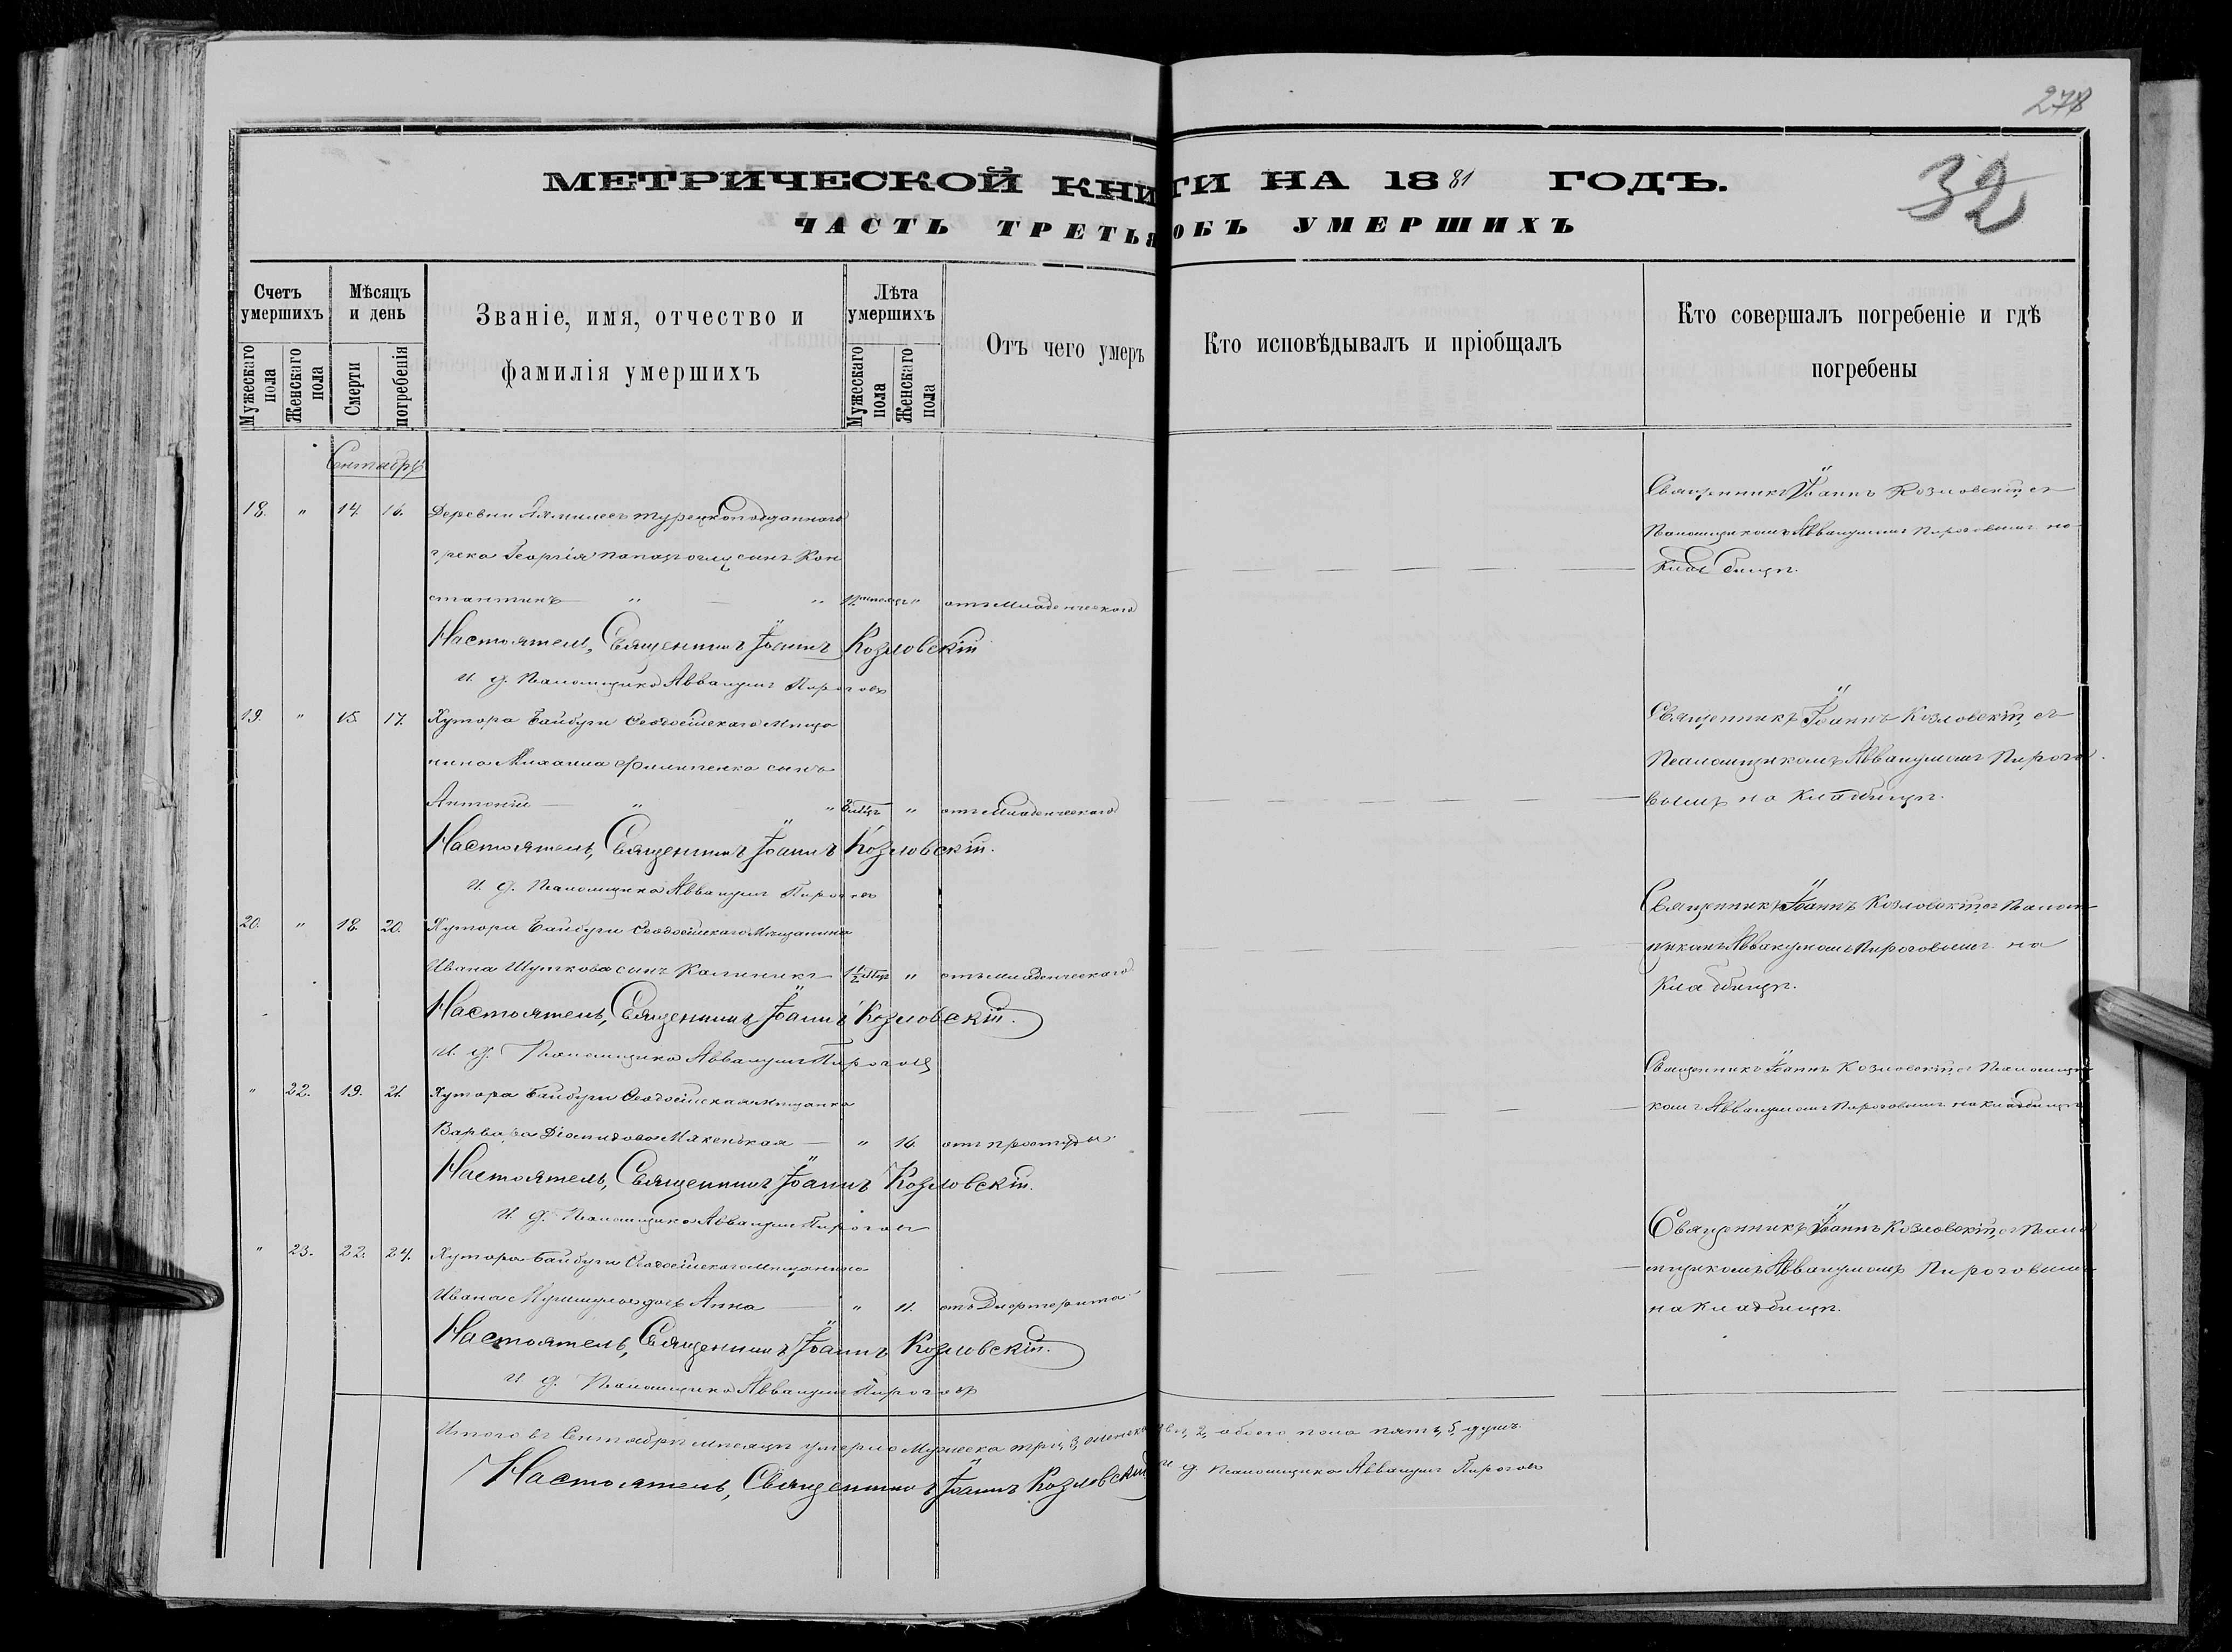 278
32
МЕТРИЧЕСКОЙ КНИГИ НА 1881 ГОДЪ.
ЧАСТЬ ТРЕТЬЯ ОБЪ УМЕРШИХЪ
Счетъ умершихъ
Мужескаго пола
Женскаго пола
Мѣсяцъ и день
Смерти
погребенія
Званіе, имя, отчество и
фамилія умершихъ
Лѣта умершихъ
Мужескаго пола
Женскаго пола
Отъ чего умеръ
Кто исповѣдывалъ и пріобщалъ
Кто совершалъ погребеніе и гдѣ
погребены
Сентябрь
18. " 14. 16. Деревни турецкоподданнаго
грека Георгія сынъ Кон
стантинъ " " " отъ младенческаго
Священникъ Іоаннъ Козловскій съ
Псаломщикомъ Аввакумомъ Пироговымъ на
кладбищѣ.
Настоятель, Священникъ Іоаннъ Козловскій
И. д. Псаломщика Аввакумъ Пироговъ
19. " 15. 17. Хутора Байбуги Ѳеодосійскаго Мѣща
нина Михаила Филипенка сынъ
Антоній " " " отъ младенческаго
Священникъ Іоаннъ Козловскій, съ
Псаломщикомъ Аввакумомъ Пирого
вымъ на кладбищѣ.
Настоятель, Священникъ Іоаннъ Козловскій.
И. д. Псаломщика Аввакумъ Пироговъ
20. " 18. 20. Хутора Байбуги Ѳеодосійскаго Мѣщанина
Ивана Шуткова сынъ Калиникъ " отъ младенческаго
Священникъ Іоаннъ Козловскій, съ Псалом
щикомъ Аввакумомъ Пироговымъ на
кладбищѣ.
Настоятель, Священникъ Іоаннъ Козловскій.
И. д. Псаломщика Аввакумъ Пироговъ
" 22. 19. 21. Хутора Байбуги Ѳеодосійская мѣщанка
Варвара " 16. отъ простуды.
Священникъ Іоаннъ Козловскій, съ Псаломщи
комъ Аввакумомъ Пироговымъ на кладбищѣ
Настоятель, Священникъ Іоаннъ Козловскій.
И. д. Псаломщика Аввакумъ Пироговъ
" 23. 22. 24. Хутора Байбуги Ѳеодосійскаго Мѣщанина
Ивана дочь Анна " 11. отъ Дифтерита.
Священникъ Іоаннъ Козловскій, съ Псало
мщикомъ Аввакумомъ Пироговымъ
на кладбищѣ.
Настоятель, Священникъ Іоаннъ Козловскій.
И. д. Псаломщика Аввакумъ Пироговъ
Итого въ Сентябрѣ мѣсяцѣ умерло Мужеска три, 3, женска двѣ, 2, обоего пола пять, 5, душъ.
Настоятель, Священникъ Іоаннъ Козловскій И. д. Псаломщика Аввакумъ Пироговъ